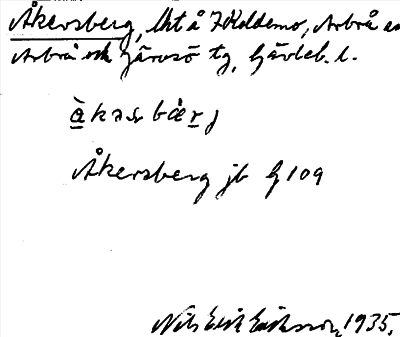 Åkersberg, lht å Koldemo, Arbrå sn
Arbrå och Järvsö tg, Gävleb. l.
àkasbær j
Åkersberg jb G 109
Nils Erik Eriksson, 1935.